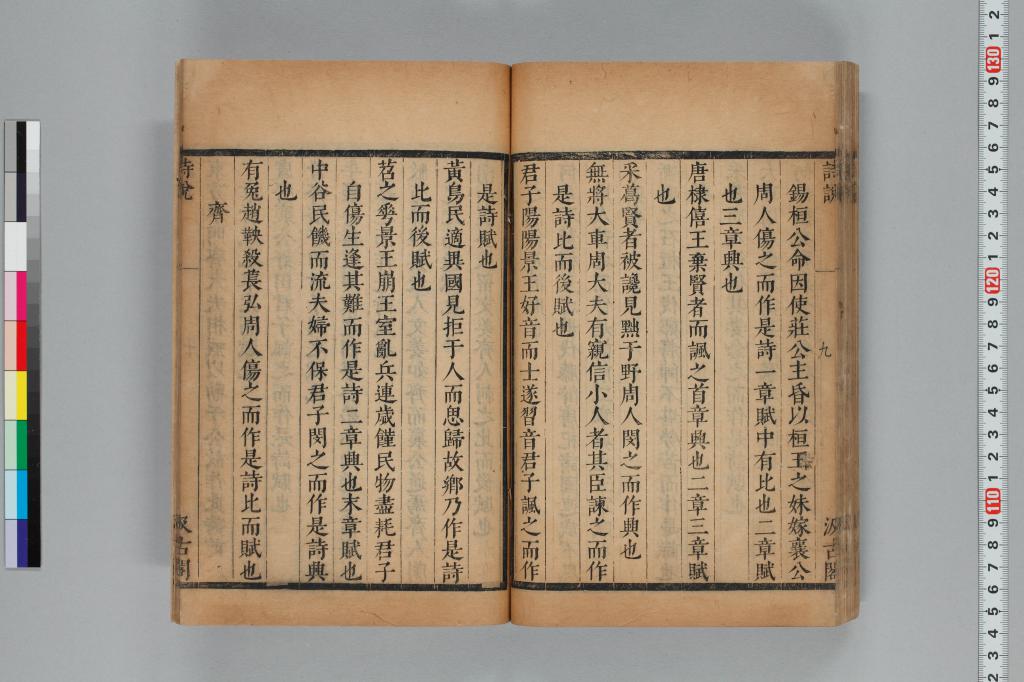 詩說
九
汲古閣
錫桓公命因使莊公主昏以桓王之妹嫁襄公
周人傷之而作是詩一章賦中有比也二章賦
也三章興也
唐棣僖王棄賢者而諷之首章興也二章三章賦
也
采葛賢者被讒見黜于野周人閔之而作興也
無將大車周大夫有寵信小人者其臣諫之而作
是詩比而後賦也
君子陽陽景王好音而士遂習音君子諷之而作
是詩賦也
黃鳥民適異國見拒于人而思歸故鄉乃作是詩
比而後賦也
苕之華景王崩王室亂兵連歲饉民物盡耗君子
自傷生逢其難而作是詩二章興也末章賦也
中谷民饑而流夫婦不保君子閔之而作是詩興
也
有兔趙鞅殺萇弘周人傷之而作是詩比而賦也
齊
詩說
汲古閣